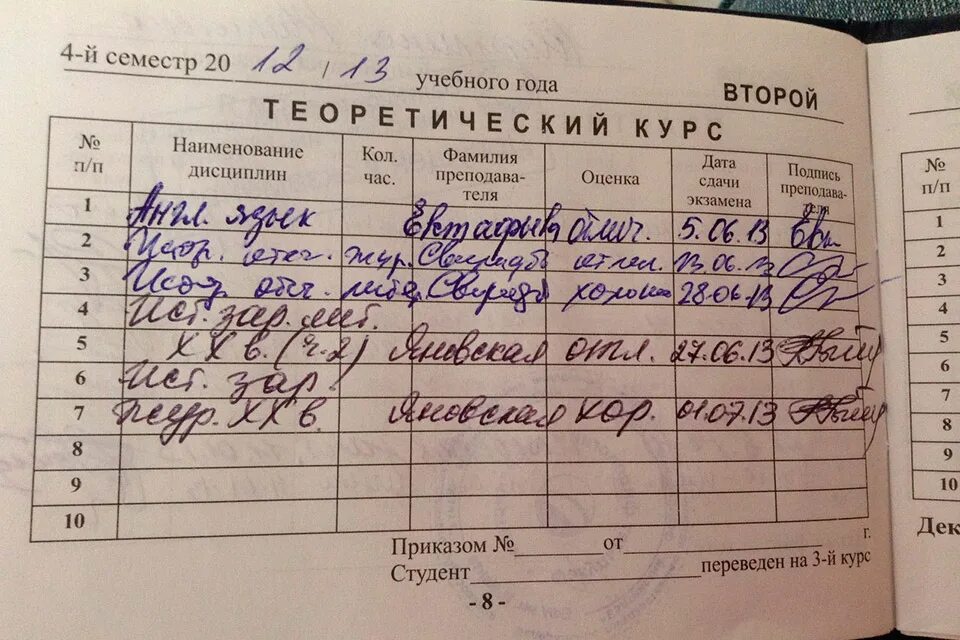 4-й семестр 20 12 / 13 учебного года ВТОРОЙ
ТЕОРЕТИЧЕСКИЙ КУРС
№ п/п Наименование дисциплин Кол. час. Фамилия преподава- теля Оценка Дата сдачи экзамена Подпись преподава- теля
1 Англ. язык отлич. 5.06.13
2 Истор. отеч. жур. отлич. 13.06.13
3 Истор. отеч. литер. хорошо 28.06.13
4 Ист. зар. лит.
5 XX в. (ч. 2) Яновская отл. 27.06.13
6 Ист. зар.
7 жур. XX в. Яновская хор. 01.07.13
8
9
10
Приказом № от г.
Студент переведен на 3-й курс
- 8 -
№ п/п
1
2
3
4
5
6
7
8
9
10
Дек